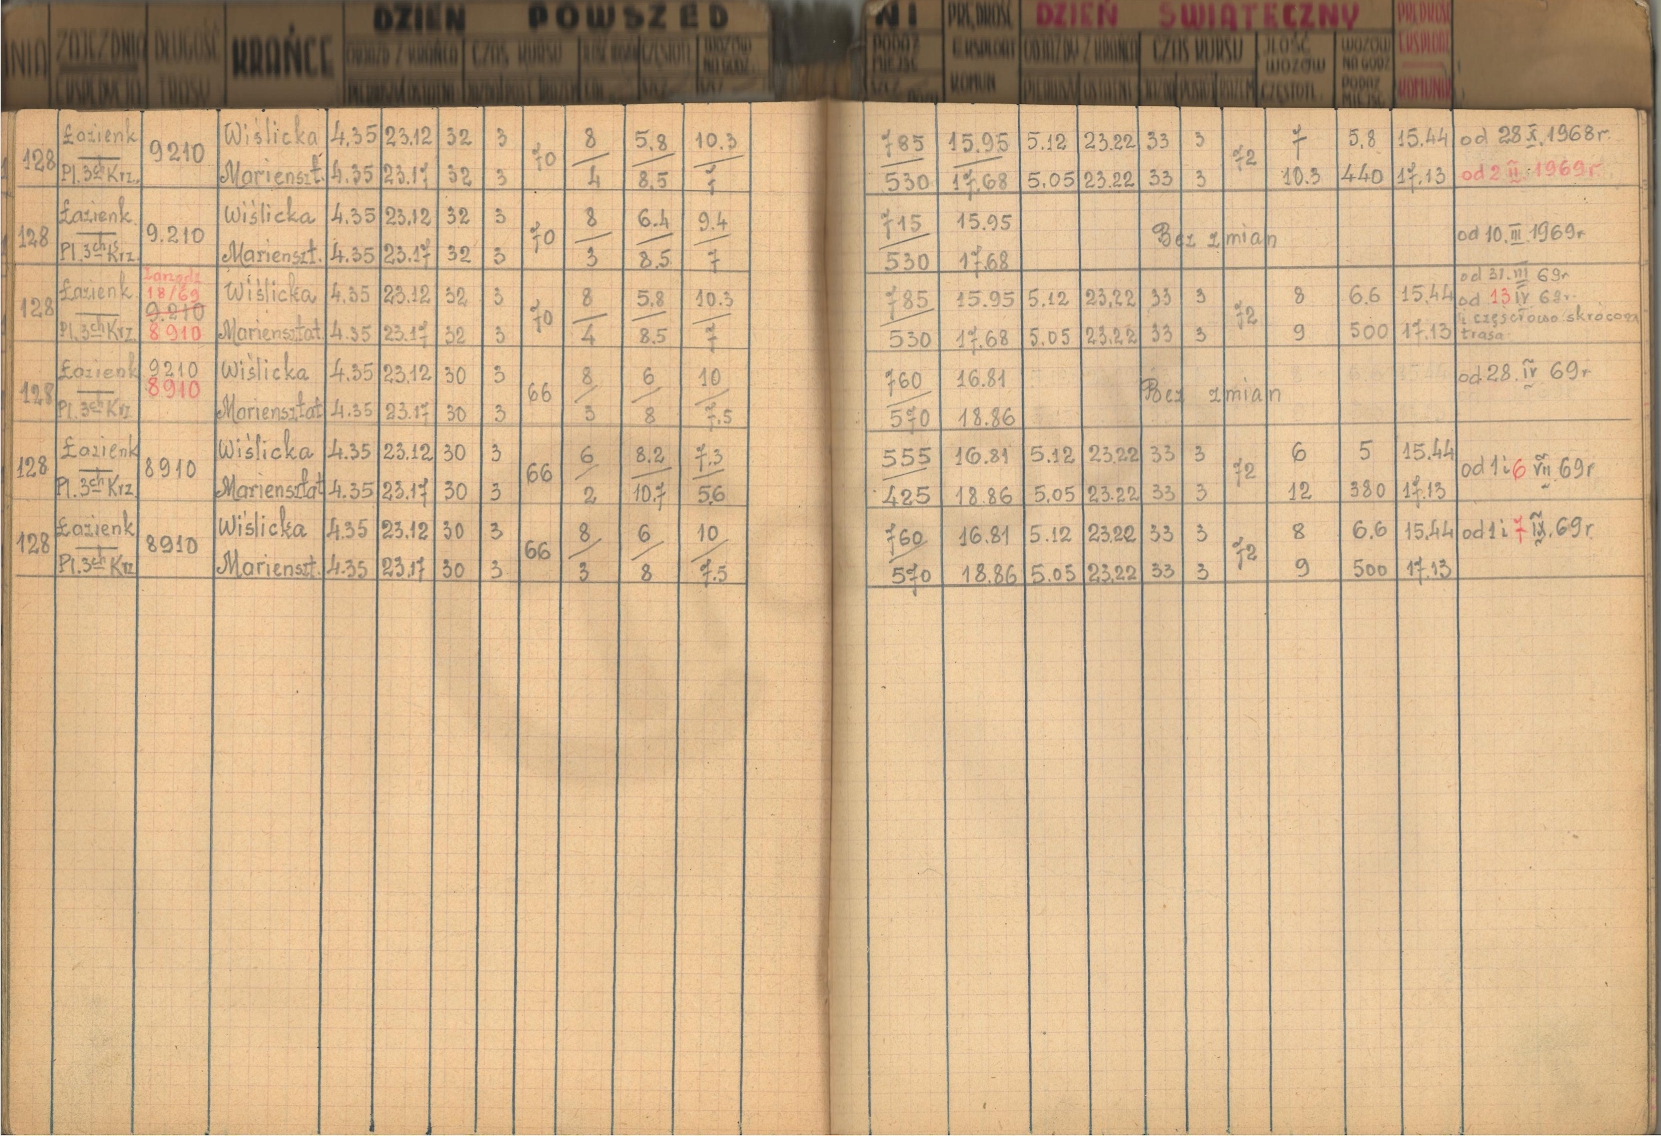 DZIEŃ POWSZED NI DZIEŃ ŚWIĄTECZNY
NIA ZAJEZDNIA DŁUGOŚĆ TRASU KRAŃCE CZAS KURSU PRĘDKOŚĆ EKSPLOAT KOMUN CZAS KURSU ILOŚĆ WOZÓW CZĘSTOTL. WOZÓW NA GODZ PODAŻ MIEJSC
128 Łazienk. 9210 Wiślicka 4.35 23.12 32 3 70 8 5,8 10.3 785 15.95 5.12 23.22 33 3 72 7 5,8 15.44 od 28 X. 1968r.
Pl. 3ch Krz. Marienszt. 4.35 23.17 32 3 4 8.5 7 530 17.68 5.05 23.22 33 3 10.3 440 17.13 od 2 II. 1969r.
128 Łazienk. 9.210 Wiślicka 4.35 23.12 32 3 70 8 6.4 9.4 715 15.95 Bez zmian od 10. III 1969r
Pl. 3ch Krz. Marienszt. 4.35 23.17 32 3 3 8.5 7 530 17.68
128 Łazienk. Zarządz 18/69 9.210 Wiślicka 4.35 23.12 32 3 70 8 5,8 10.3 785 15.95 5.12 23,22 33 3 72 8 6.6 15,44 od 31. III 69r
od 13 IV 69r.
i częściowo skrócona
Pl. 3ch Krz. 8910 Mariensztat 4.35 23.17 32 3 4 8.5 7 530 17.68 5.05 23.22 33 3 9 500 17.13 trasa
128 Łazienk 9210 Wiślicka 4.35 23.12 30 3 66 8 6 10 760 16.81 Bez zmian od 28. IV 69r
8910
Pl. 3ch Krz Mariensztat 4.35 23.17 30 3 3 8 7.5 570 18.86
128 Łazienk 8910 Wiślicka 4.35 23.12 30 3 66 6 8.2 7.3 555 16.81 5.12 23,22 33 3 72 6 5 15.44 od 1 i 6 VII. 69r
Pl. 3ch Krz. Mariensztat 4.35 23.17 30 3 2 10.7 5.6 425 18.86 5.05 23.22 33 3 12 380 17.13
128 Łazienk 8910 Wiślicka 4.35 23.12 30 3 66 8 6 10 760 16.81 5.12 23.22 33 3 72 8 6.6 15.44 od 1 i 7 IX. 69r.
Pl. 3ch Krz Marienszt. 4.35 23.17 30 3 3 8 7.5 570 18.86 5.05 23,22 33 3 9 500 17.13